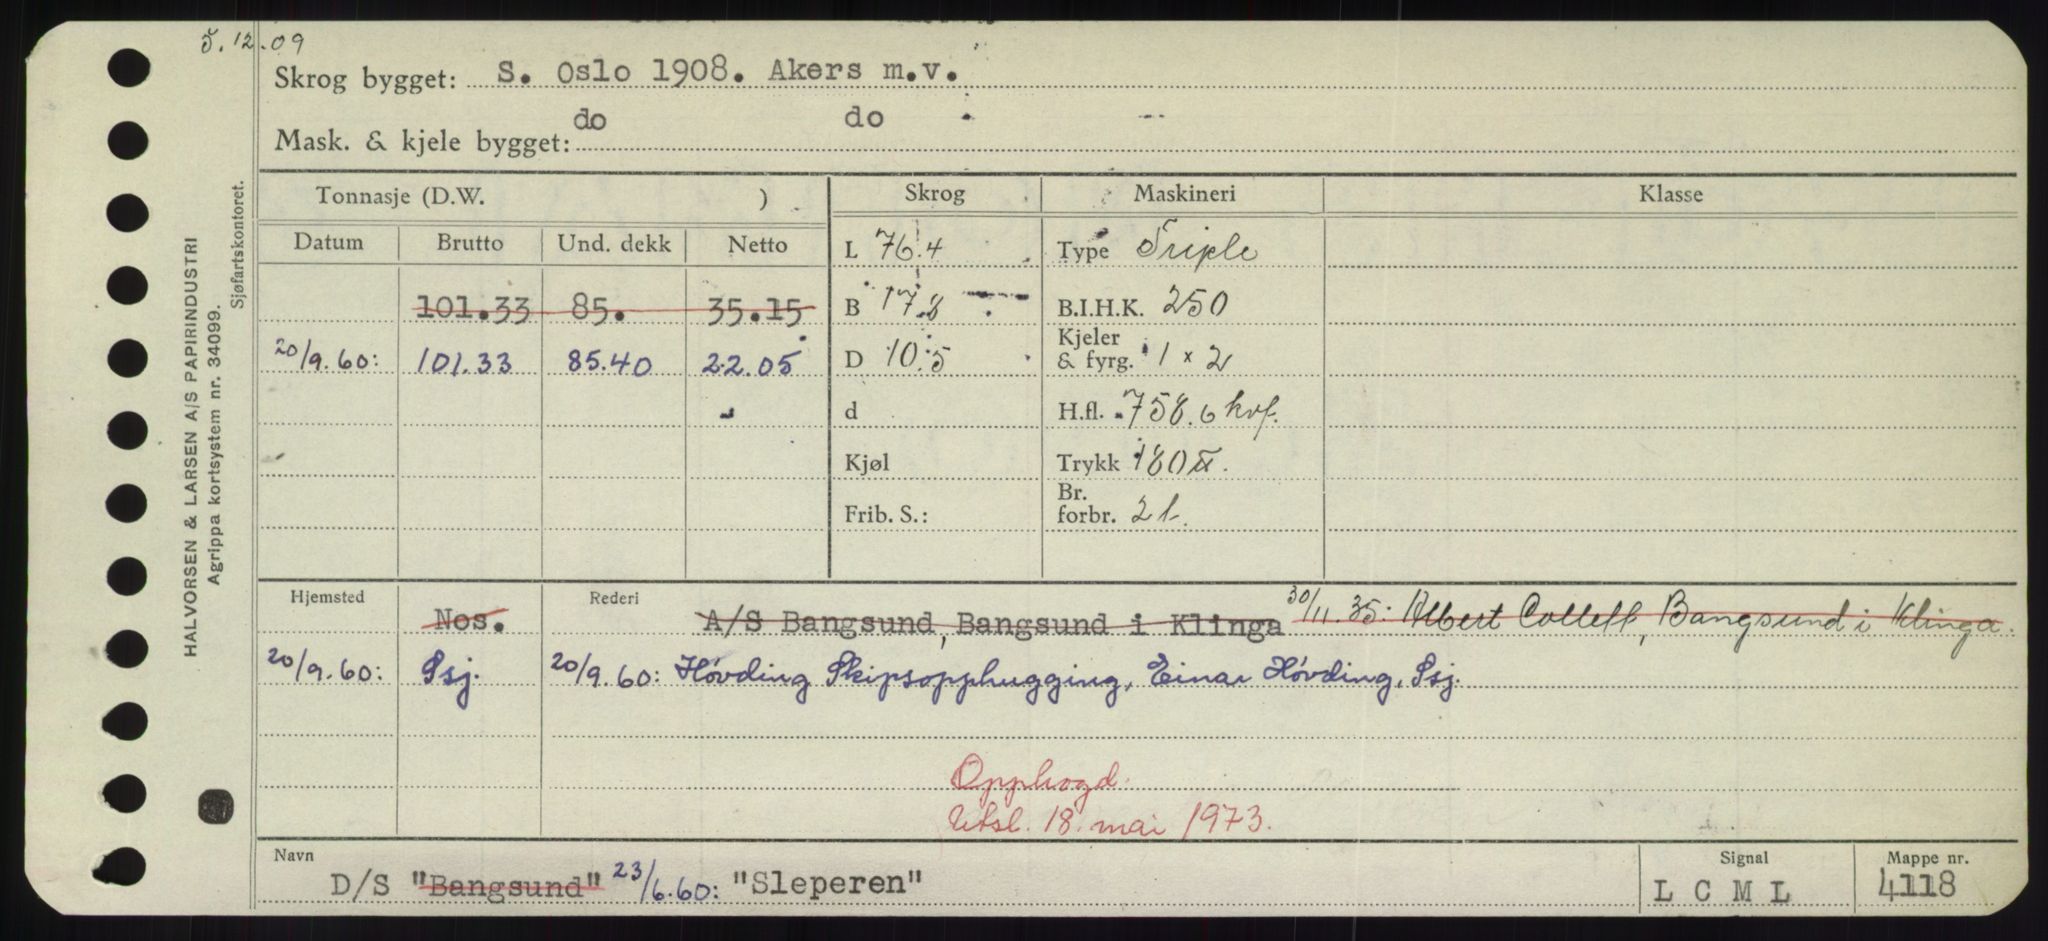 5.12.09
Skrog bygget: S. Oslo 1908. Akers m.v.
Mask. & kjele bygget: do do
HALVORSEN & LARSEN A/S PAPIRINDUSTRI
Agrippa kortsystem nr. 34099.
Sjøfartskontoret.
Tonnasje (D.W. ) Skrog Maskineri Klasse
Datum Brutto Und. dekk Netto L 76.4 Type Triple
101.33 85. 35.15 B 17.8 B.I.H.K. 250
20/9.60: 101.33 85.40 22.05 D 10.5 Kjeler & fyrg. 1 x 2
d H.fl. 758.6 kvf.
Kjøl Trykk 180 ℔.
Frib. S.: Br. forbr. 2 t.
Hjemsted Nos. Rederi A/S Bangsund, Bangsund i Klinga 30/11.35: Albert Collett, Bangsund i Klinga.
20/9.60: Ssj. 20/9.60: Høvding Skipsopphugging, Einar Høvding, Ssj.
Opphogd.
Utsl. 18. mai 1973.
Navn Signal Mappe nr.
D/S "Bangsund" 23/6.60: "Sleperen" L C M L 4118